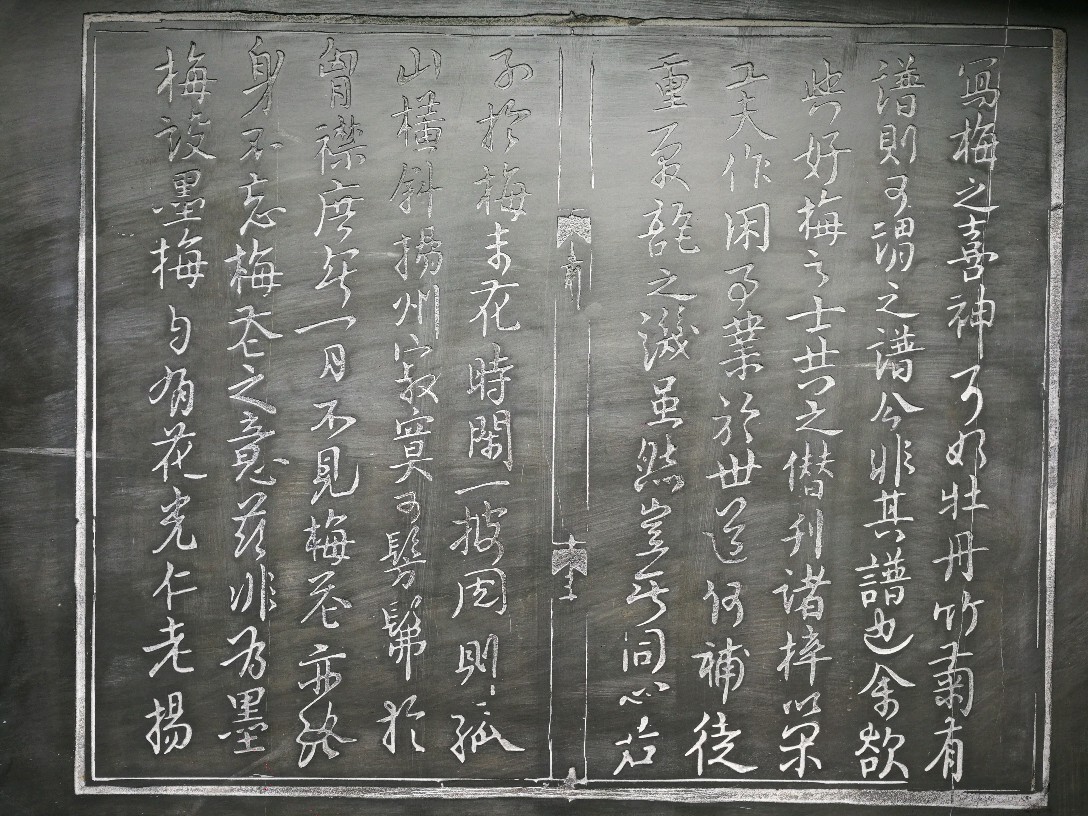 寫梅之喜神可如牡丹竹菊有
譜則可謂之譜今非其譜也余欲
與好梅之士共之僭刊諸梓以閑
工夫作閑事業於世道何補徒
重覆瓿之譏虽然豈無同心君
子於梅未花時閑一披閱則孤
山橫斜揚州寂寞可髣髴於
胷襟庶無一日不見梅花亦終
身不忘梅花之意茲非為墨
梅設墨梅自有花光仁老揚